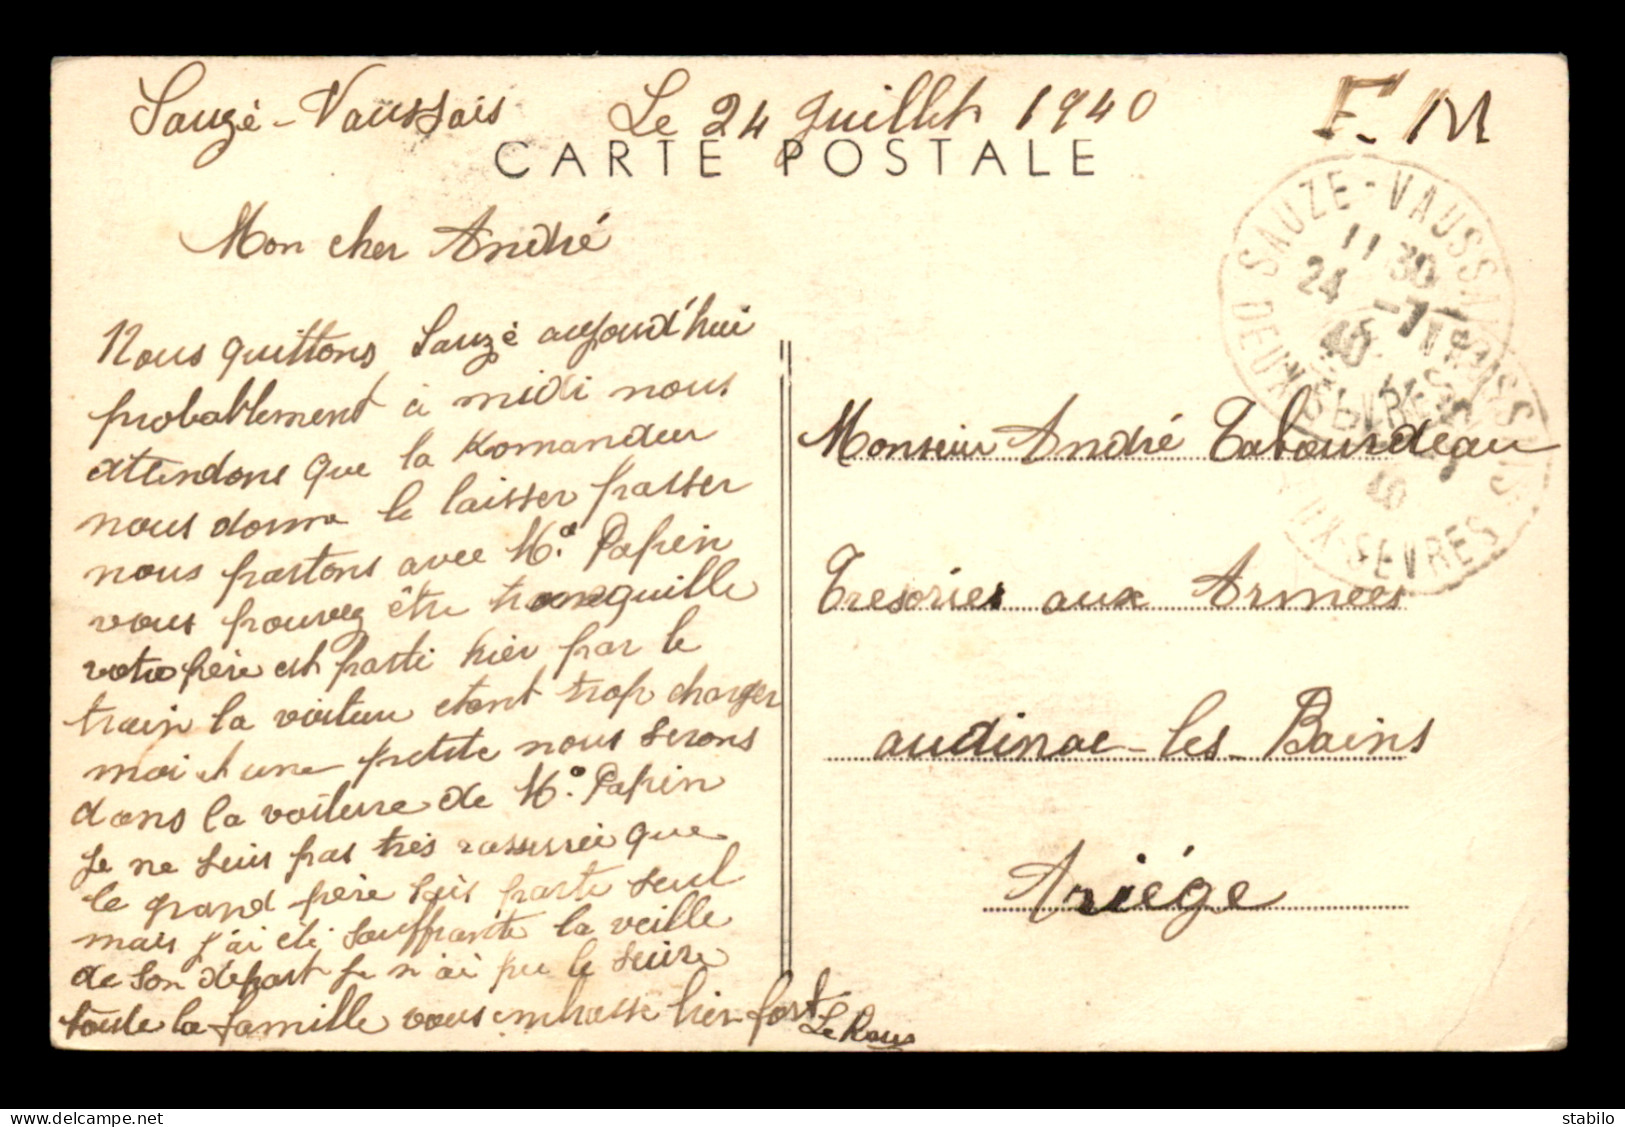 Sauzé-Vaussais Le 24 Juillet 1940
F. M
CARTE POSTALE
Mon cher André
Nous quittons Sauzé aujourd'hui
probablement à midi nous
attendons que la Komandeur
nous donne le laisser passer
nous partons avec Mr. Papin
vous pouvez être tranquille
votre père est parti hier par le
train la voiture etant trop charger
moi et une petite nous serons
dans la voiture de Mr. Papin
je ne suis pas très rassurée que
le grand père sois partie seul
mais j'ai été souffrante la veille
de son depart je n'ai pu le suivre
toute la famille vous embrasse bien fort
Monsieur André Tabourdeau
Tresories aux Armées
audinac-les-Bains
Ariége
SAUZE-VAUSSAIS
11 30
24 -7
40
DEUX-SEVRES
delcampe.net
stabilo